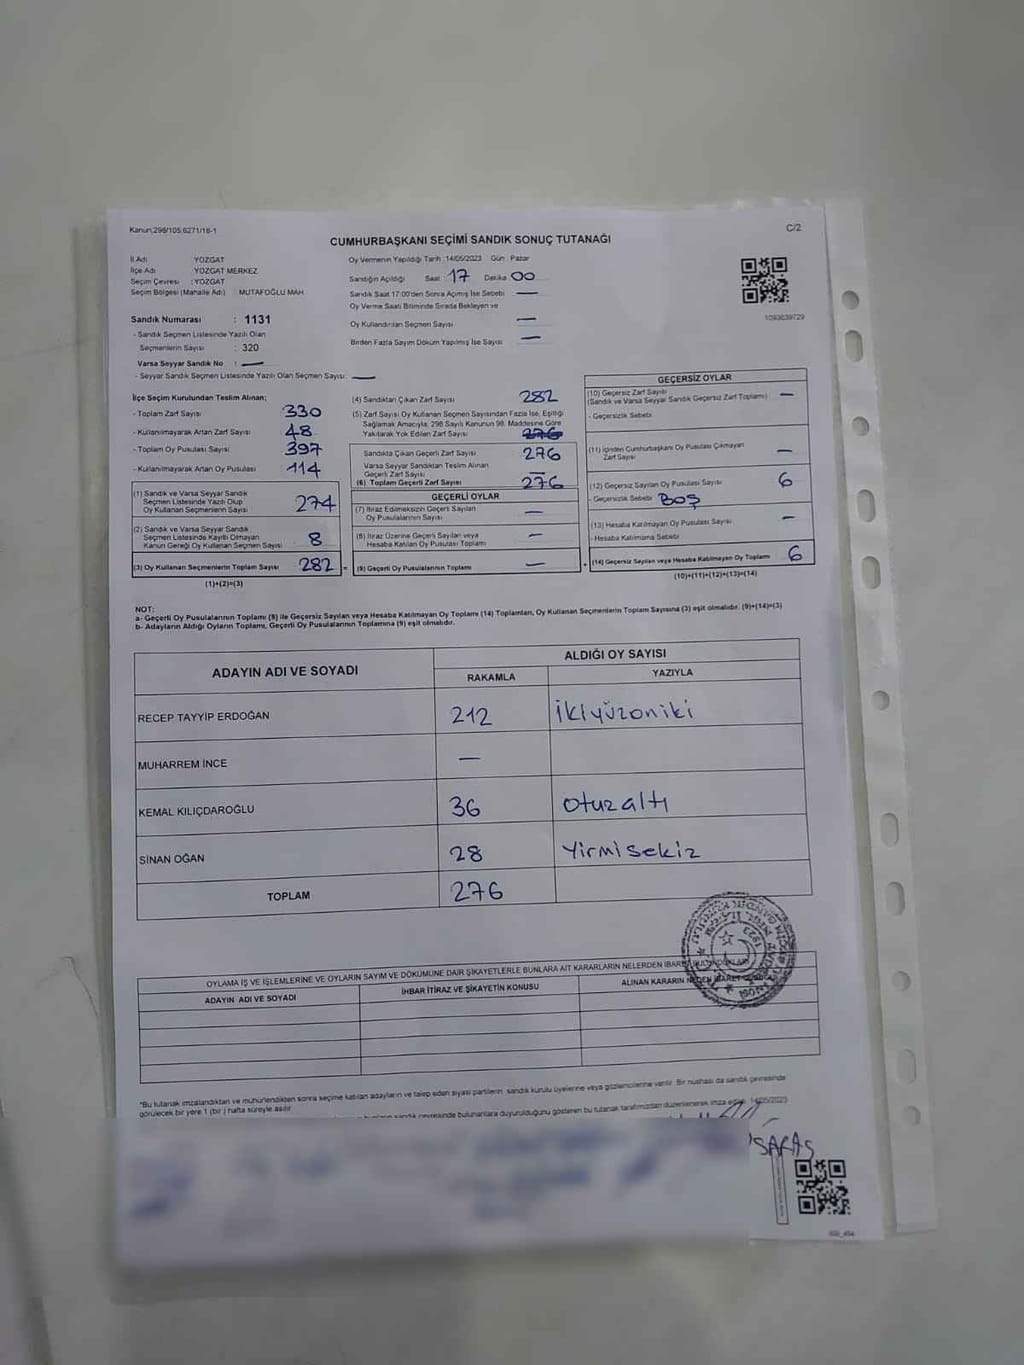 Kanun;298/105;6271/18-1
C/2
CUMHURBAŞKANI SEÇİMİ SANDIK SONUÇ TUTANAĞI
İl Adı YOZGAT
İlçe Adı YOZGAT MERKEZ
Seçim Çevresi : YOZGAT
Seçim Bölgesi (Mahalle Adı) : MUTAFOĞLU MAH.
Sandık Numarası : 1131
- Sandık Seçmen Listesinde Yazılı Olan
Seçmenlerin Sayısı : 320
Varsa Seyyar Sandık No : —
- Seyyar Sandık Seçmen Listesinde Yazılı Olan Seçmen Sayısı: —
Oy Vermenin Yapıldığı Tarih :14/05/2023 Gün : Pazar
Sandığın Açıldığı Saat : 17 Dakika 00
Sandık Saat 17:00'den Sonra Açılmış İse Sebebi —
Oy Verme Saati Bitiminde Sırada Bekleyen ve
Oy Kullandırılan Seçmen Sayısı —
Birden Fazla Sayım Döküm Yapılmış İse Sayısı —
1093639729
İlçe Seçim Kurulundan Teslim Alınan;
- Toplam Zarf Sayısı 330
- Kullanılmayarak Artan Zarf Sayısı 48
- Toplam Oy Pusulası Sayısı 397
- Kullanılmayarak Artan Oy Pusulası 114
(1) Sandık ve Varsa Seyyar Sandık
Seçmen Listesinde Yazılı Olup
Oy Kullanan Seçmenlerin Sayısı 274
(2) Sandık ve Varsa Seyyar Sandık
Seçmen Listesinde Kaydı Olmayan
Kanun Gereği Oy Kullanan Seçmen Sayısı 8
(3) Oy Kullanan Seçmenlerin Toplam Sayısı 282
(1)+(2)=(3)
(4) Sandıktan Çıkan Zarf Sayısı 282
(5) Zarf Sayısı Oy Kullanan Seçmen Sayısından Fazla İse, Eşitliği
Sağlamak Amacıyla; 298 Sayılı Kanunun 98. Maddesine Göre
Yakılarak Yok Edilen Zarf Sayısı 276
Sandıkta Çıkan Geçerli Zarf Sayısı 276
Varsa Seyyar Sandıktan Teslim Alınan
Geçerli Zarf Sayısı —
(6) Toplam Geçerli Zarf Sayısı 276
GEÇERLİ OYLAR
(7) İtiraz Edilmeksizin Geçerli Sayılan
Oy Pusulalarının Sayısı —
(8) İtiraz Üzerine Geçerli Sayılan veya
Hesaba Katılan Oy Pusulası Toplamı —
= (9) Geçerli Oy Pusulalarının Toplamı —
GEÇERSİZ OYLAR
(10) Geçersiz Zarf Sayısı —
(Sandık ve Varsa Seyyar Sandık Geçersiz Zarf Toplamı)
- Geçersizlik Sebebi:
(11) İçinden Cumhurbaşkanı Oy Pusulası Çıkmayan
Zarf Sayısı —
(12) Geçersiz Sayılan Oy Pusulası Sayısı 6
- Geçersizlik Sebebi BOŞ
(13) Hesaba Katılmayan Oy Pusulası Sayısı —
- Hesaba Katılmama Sebebi
+ (14) Geçersiz Sayılan veya Hesaba Katılmayan Oy Toplamı 6
(10)+(11)+(12)+(13)=(14)
NOT:
a- Geçerli Oy Pusulalarının Toplamı (9) ile Geçersiz Sayılan veya Hesaba Katılmayan Oy Toplamı (14) Toplamları, Oy Kullanan Seçmenlerin Toplam Sayısına (3) eşit olmalıdır. (9)+(14)=(3)
b- Adayların Aldığı Oyların Toplamı, Geçerli Oy Pusulalarının Toplamına (9) eşit olmalıdır.
ADAYIN ADI VE SOYADI ALDIĞI OY SAYISI
RAKAMLA YAZIYLA
RECEP TAYYİP ERDOĞAN 212 İkiyüzoniki
MUHARREM İNCE —
KEMAL KILIÇDAROĞLU 36 Otuzaltı
SİNAN OĞAN 28 Yirmisekiz
TOPLAM 276
OYLAMA İŞ VE İŞLEMLERİNE VE OYLARIN SAYIM VE DÖKÜMÜNE DAİR ŞİKAYETLERLE BUNLARA AİT KARARLARIN NELERDEN İBARET BULUNDUKLARI
ADAYIN ADI VE SOYADI İHBAR İTİRAZ VE ŞİKAYETİN KONUSU ALINAN KARARIN NEDEN İBARET
*Bu tutanak imzalandıktan ve mühürlendikten sonra seçime katılan adayların ve talep eden siyasi partilerin sandık kurulu üyelerine veya gözlemcilerine verilir. Bir nüshası da sandık çevresinde
görülecek bir yere 1 (bir) hafta süreyle asılır.
sandık çevresinde bulunanlara duyurulduğunu gösteren bu tutanak tarafımızdan düzenlenerek imza edildi. 14/05/2023